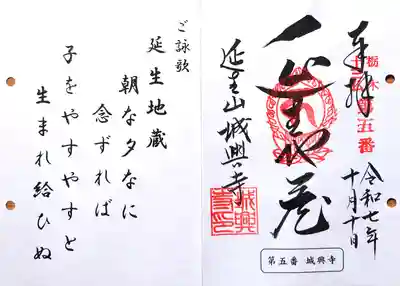 奉拝
栃木
十三仏
第五番
令和七年
十月十日
延生山城興寺
城興寺印
第五番 城興寺
ご詠歌
延生地蔵
朝な夕なに
念ずれば
子をやすやすと
生まれ給ひぬ